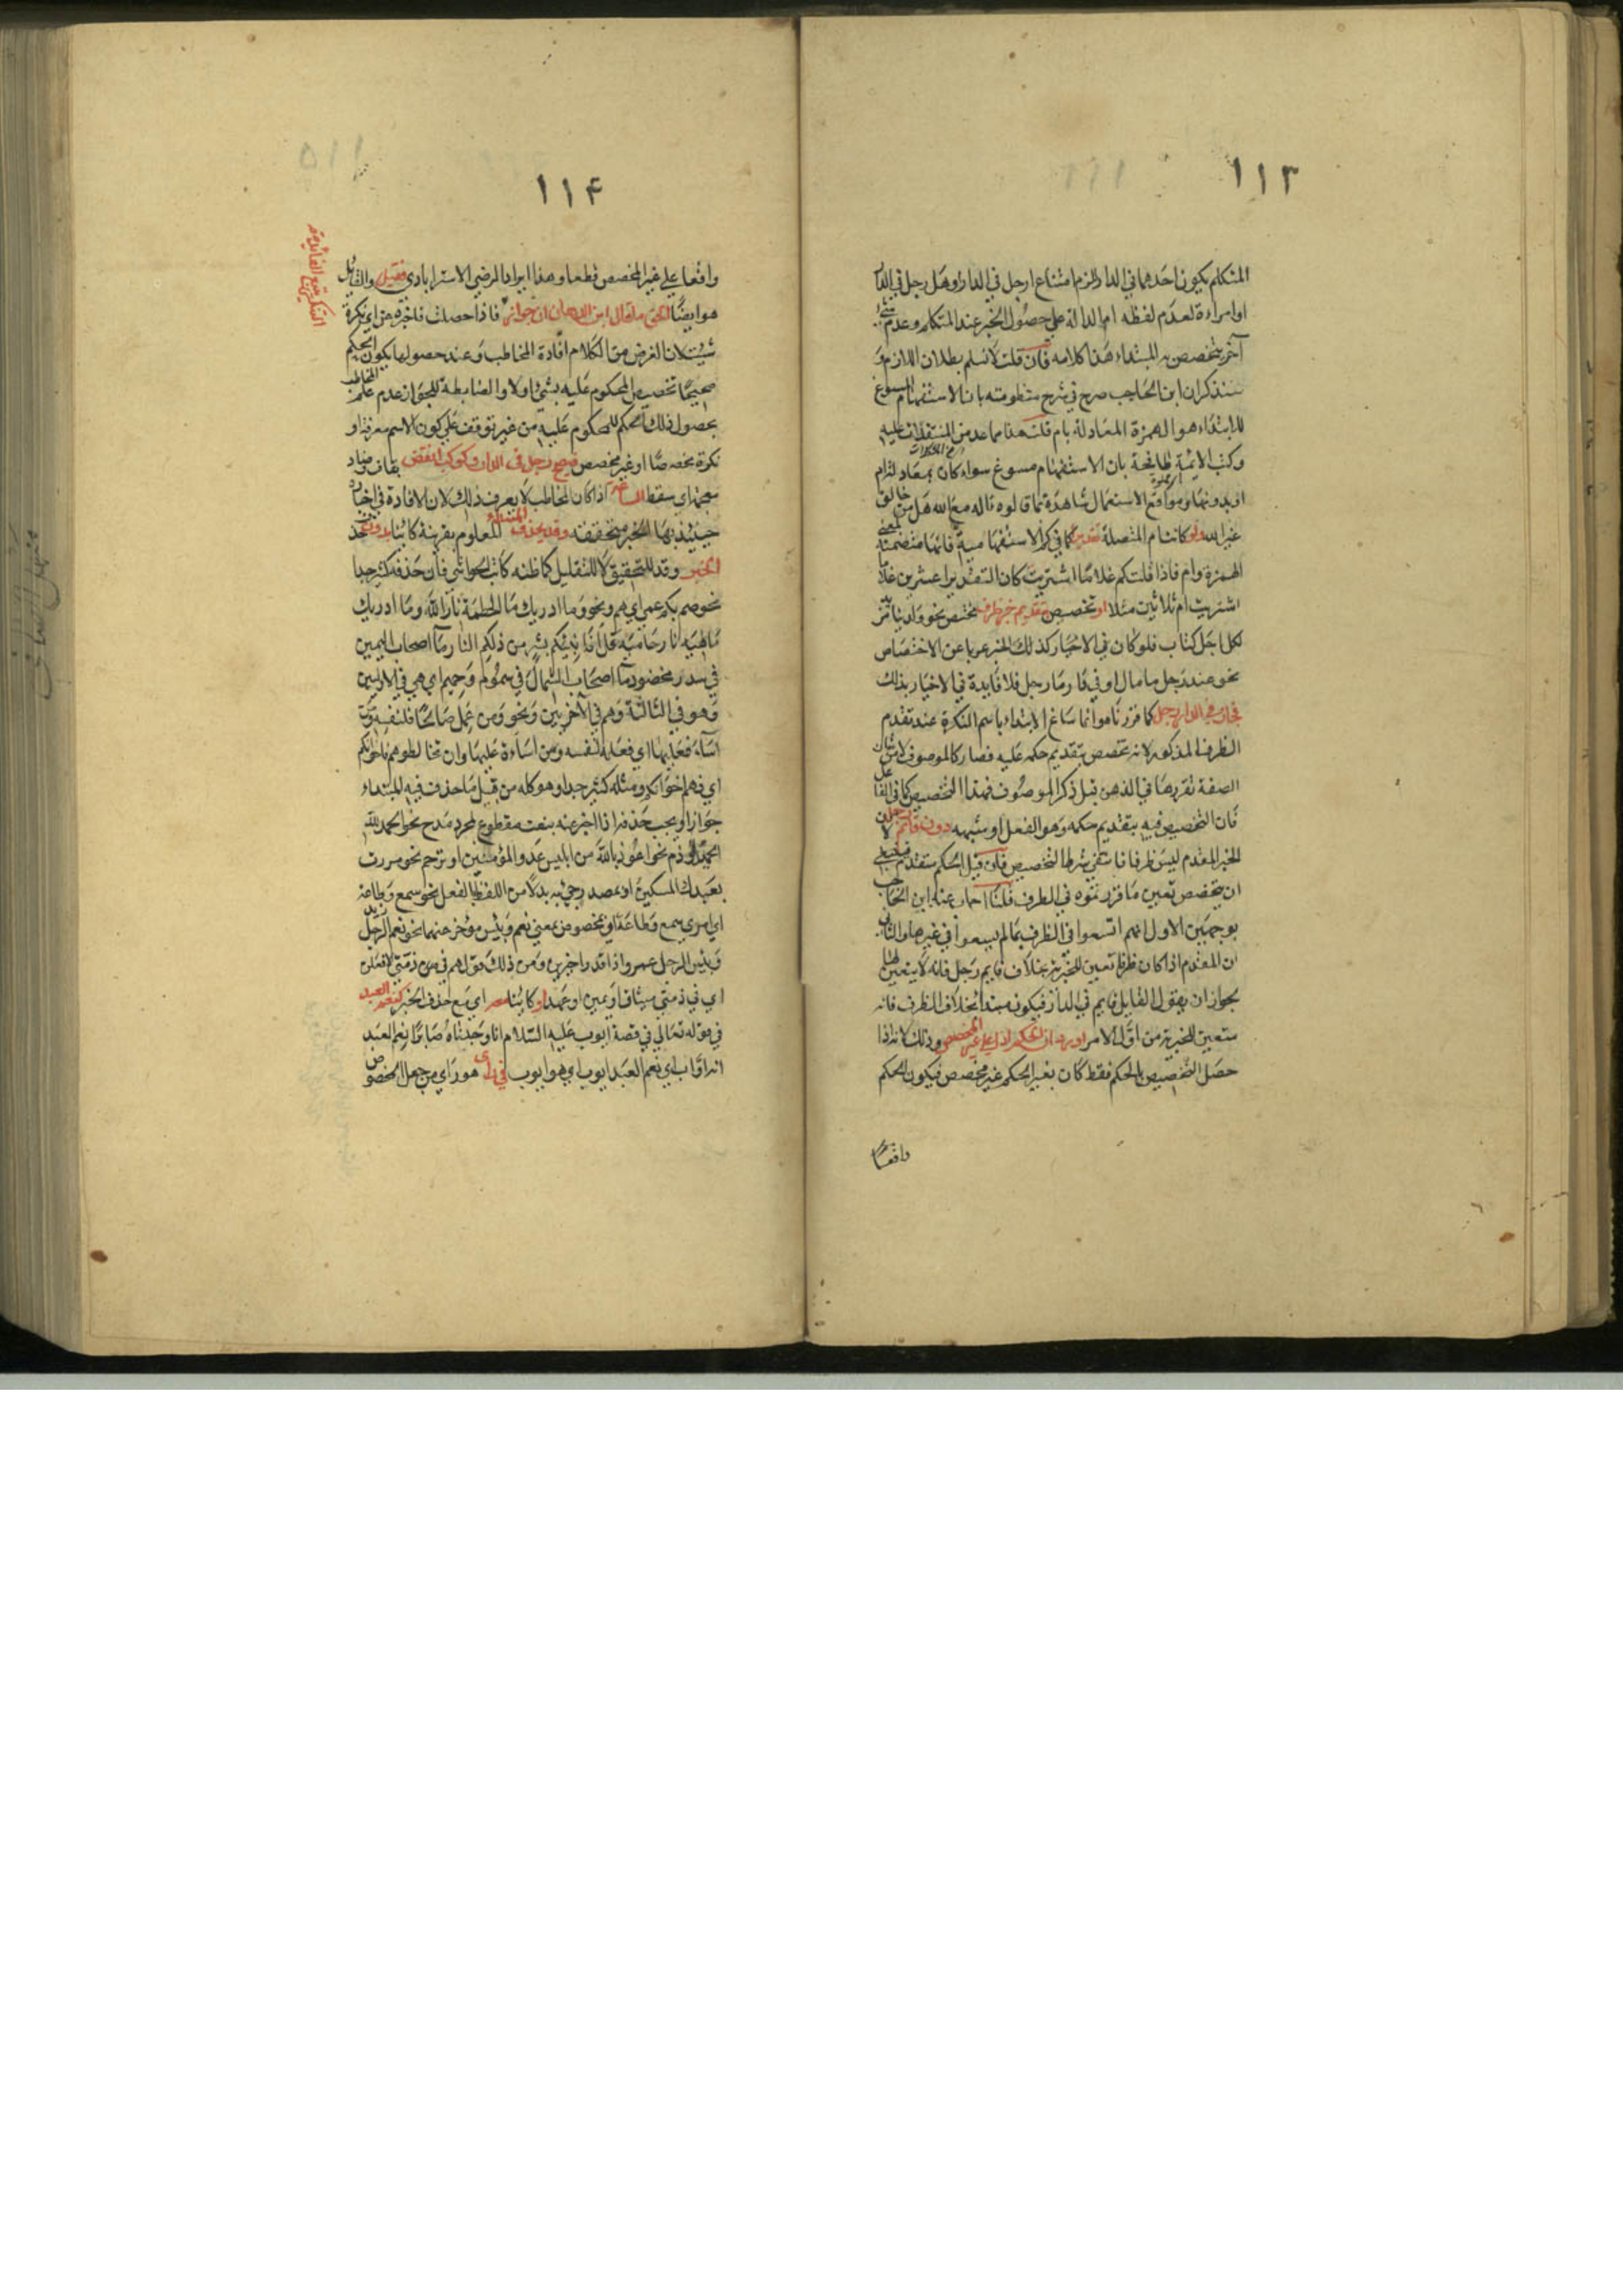 ١١٣
المتكلم بكون احدهما في الدار للزم امتناع ارجل في الدار او هل رجل في الدار
او امراءة لعدم لفظه ام الدالة على حصول الخبر عند المتكلم وعدم
آخر يتخصص به المبتداء هذا كلامه فان قلت لا نسلم بطلان اللازم و
سنذكر ان ابن الحاجب صرح في شرح منظومته بان الاستفهام المسوغ
للابتداء هو الهمزة المعادلة بام قلت هذا مما عد من المستقدات عليه
وكتب الائمة طافحة بان الاستفهام مسوغ سواء كان بمعاد لتزام
او بدونها ومواقع الاستعمال شاهدة بما قالوه ءاله مع الله هل من خالق
غير الله ولو كانت ام المتصلة تقديرا كما في كم الاستفهامية فانها متضمنة لمعنى
الهمزة وام فاذا قلت كم غلاما اشتريت كان التقدير اعشرين غلاما
اشتريت ام ثلاثين مثلا او تخصيص بتقديم خبر ظرف مختص نحو ولدينا مزيد
لكل اجل كتاب فلو كان في الاخبار كذلك الخبر عريا عن الاختصاص
نحو عند رجل مال او في دار رجل فلا فايدة في الاخبار بذلك
نحو في الدار رجل كما قررناه وانما ساغ الابتداء باسم النكرة عند تقدم
الظرف المذكور لانه تخصص بتقديم حكمه عليه فصار كالموصوف لان شان
الصفة تقررها في الذهن قبل ذكر الموصوف فهذا التخصيص كما في الفاعل
فان التخصيص فيه بتقديم حكمه وهو الفعل او شبهه دون قائم رجل لان
الخبر المقدم ليس ظرفا فانتفي شرط التخصيص فان قيل الحكم بتقدم
ان يتخصص تعين ما قررتموه في الظرف قلنا اجاب عنه ابن الحاجب
بوجهين الاول انهم اتسعوا في الظرف بما لم يتسعوا في غيرها والثاني
ان المقدم اذا كان ظرفا تعين للخبرية بخلاف قايم رجل فانه لا يتعين لها
لجواز ان يقول القايل قايم في الدار فيكون مبتدا بخلاف الظرف فانه
متعين للخبرية من اول الامر اورد ان الحكم اذن على غير المخصص وذلك لانه اذا
حصل التخصيص بالحكم فقط كان بغير الحكم غير مخصص فيكون الحكم
واقعا
١١۴
واقعا على غير المخصص قطعا وهذا ايراد الرضي الاستراباذي فقيل والقائل
هو ايضا الحق ما قال ابن الدهان ان جواز فاذا حصلت فاخبر عن اي نكرة
شئت لان الغرض من الكلام افادة المخاطب وعند حصولها يكون الحكم
صحيحا تخصيص المحكوم عليه بشئ اولا والضابطة للجواز عدم علم المخاطب
بحصول ذلك الحكم للمحكوم عليه من غير توقف على كون الاسم معرفة او
نكرة مخصصا او غير مخصص فصح رجل في الدار وكوكب انقض بقاف وضاد
معجمة اي سقط الساعة اذا كان المخاطب لا يعرف ذلك لان الافادة في اخباره
حينئذ بهذا الخبر متحققة وقد يحذف المبتداء المعلوم بقرينة كائنا بدون حذف
الخبر وقد للتحقيق لا للتقليل كما ظنه كاتب الحواشي فان حذفه كثير جدا
نحو صم بكم عمي اي هم ونحو وما ادريك ما الحطمة نار الله وما ادريك
ماهيه نار حامية قل افانبئكم بشر من ذلكم النار ما اصحاب اليمين
في سدر مخضود ما اصحاب الشمال في سموم وحميم اي هي في الاولين
وهو في الثالثة وهم في الآخرين ونحو ومن عمل صالحا فلنفسه ومن
اساء فعليها اي فعمله لنفسه ومن اساءة عليها وان تخالطوهم فاخوانكم
اي فهم اخوانكم ومثله كثير جدا وهو كله من قبيل ما حذف فيه المبتداء
جوازا ويجب حذفه اذا اخبر عنه بنعت مقطوع لمجرد مدح نحو الحمد لله
الحميد او ذم نحو اعوذ بالله من ابليس عدو المؤمنين او ترحم نحو مررت
بعبدك المسكين او بمصدر جئ به بدلا من اللفظ بالفعل نحو سمع وطاعة
اي امري سمع وطاعة او بمخصوص بمعنى نعم وبئس مؤخر عنهما نحو نعم الرجل زيد
وبئس الرجل عمرو اذا قدرا خبرين ومن ذلك قولهم في ذمتي لافعلن
اي في ذمتي ميثاق او يمين او عهد او كائنا معه اي مع حذف الخبر كنعم العبد
في قوله تعالى في قصة ايوب عليه السلام انا وجدناه صابرا نعم العبد
انه اواب اي نعم العبد ايوب اي هو ايوب في راى هو راي من جعل المخصوص